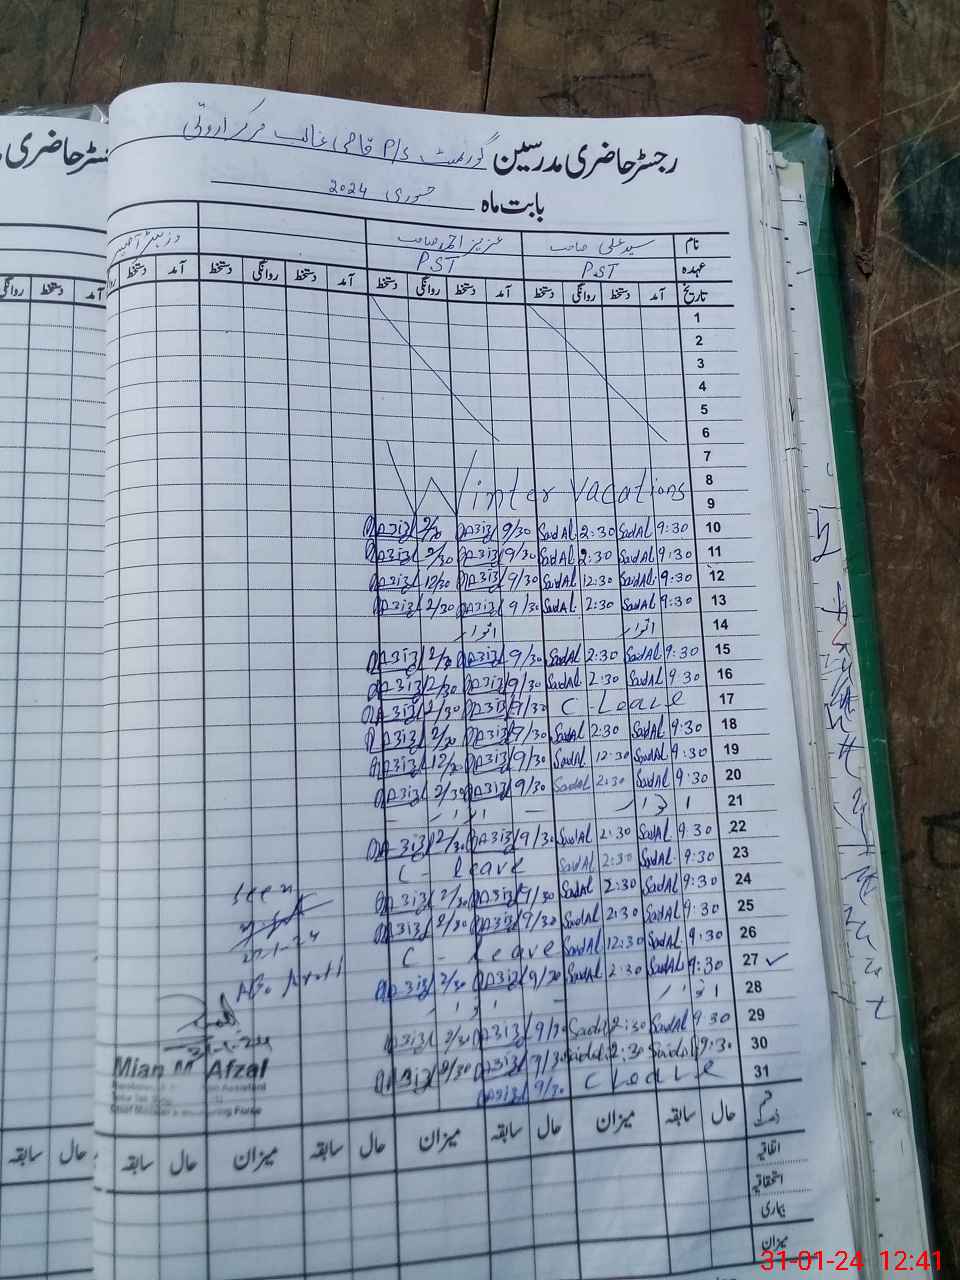 رجسٹر حاضری مدرسین گورنمنٹ P/S قاضی غالب مرکز اروٹی
بابت ماہ جنوری 2024
نام سید علی صاحب عزیز احمد صاحب
عہدہ PST PST
تاریخ آمد دستخط روانگی دستخط آمد دستخط روانگی دستخط آمد دستخط روانگی دستخط آمد دستخط
1
2
3
4
5
6
7
8 Winter Vacations
9
10 9:30 SaidAl 2:30 SaidAl 9/30 Aziz 2/30 Aziz
11 9:30 SaidAl 2:30 SaidAl 9/30 Aziz 2/30 Aziz
12 9:30 SaidAl 12:30 SaidAl 9/30 Aziz 12/30 Aziz
13 9:30 SaidAl 2:30 SaidAl 9/30 Aziz 2/30 Aziz
14 اتوار اتوار
15 9:30 SaidAl 2:30 SaidAl 9/30 Aziz 2/30 Aziz
16 9:30 SaidAl 2:30 SaidAl 9/30 Aziz 2/30 Aziz
17 C-Leave 9/30 Aziz 2/30 Aziz
18 9:30 SaidAl 2:30 SaidAl 9/30 Aziz 2/30 Aziz
19 9:30 SaidAl 12:30 SaidAl 9/30 Aziz 12/30 Aziz
20 9:30 SaidAl 2:30 SaidAl 9/30 Aziz 2/30 Aziz
21 اتوار اتوار
22 9:30 SaidAl 2:30 SaidAl 9/30 Aziz 2/30 Aziz
23 9:30 SaidAl 2:30 SaidAl C - leave
24 9:30 SaidAl 2:30 SaidAl 9/30 Aziz 2/30 Aziz
25 9:30 SaidAl 2:30 SaidAl 9/30 Aziz 2/30 Aziz
26 9:30 SaidAl 12:30 SaidAl C - leave
27 ✓ 9:30 SaidAl 2:30 SaidAl 9/30 Aziz 2/30 Aziz
28 اتوار اتوار
29 9:30 SaidAl 2:30 SaidAl 9/30 Aziz 2/30 Aziz
30 9:30 SaidAl 2:30 SaidAl 9/30 Aziz 2/30 Aziz
31 C Leave 9/30 Aziz
Seen
Mian M Afzal
حال سابقہ میزان حال سابقہ میزان حال سابقہ میزان حال سابقہ
اتفاقیہ
استحقاقیہ
بیماری
میزان
31-01-24 12:41